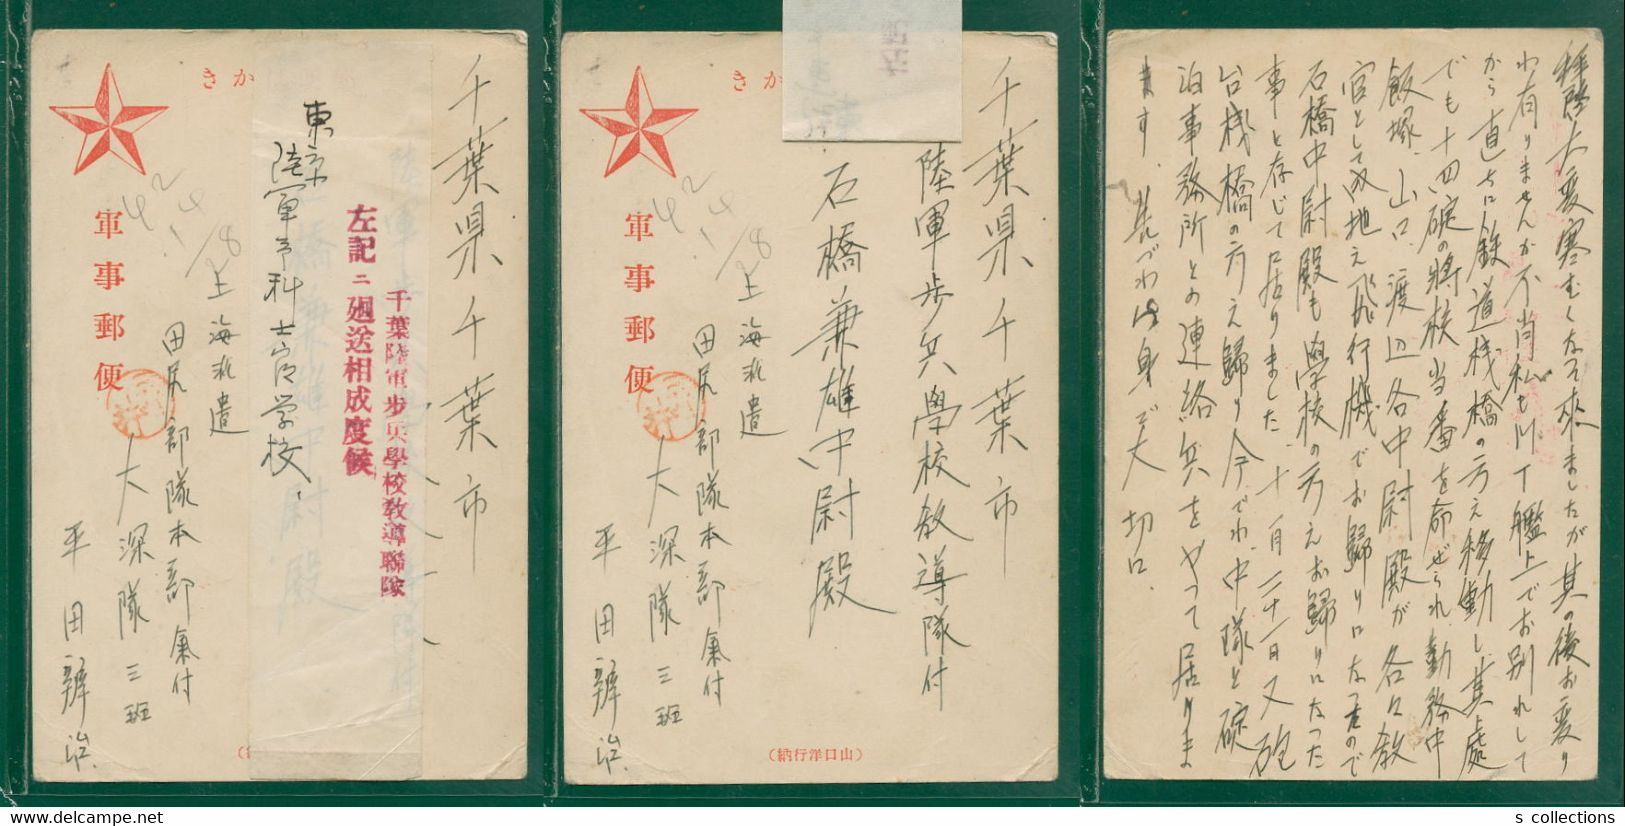 千葉県千葉市
千葉陸軍歩兵學校教導聯隊
左記ニ廻送相成度候
東京
陸軍予科士官学校
きか
軍事郵便
上海派遣
田尻部隊本部氣付
大深隊三班
平田
千葉県千葉市
陸軍歩兵學校教導隊付
石橋兼雄中尉殿
きか
軍事郵便
上海派遣
田尻部隊本部氣付
大深隊三班
平田
(山口洋行納)
拝啓 大変寒むくなって来ましたが其の後お変り
わ有りませんか 不当私も川丁艦上でお別れして
から直ちに鉄道桟橋の方え移動し 其處
でも十四碇の將校当番を命ぜられ 勤務中
飯塚、山口、渡辺各中尉殿が各々教
官として内地え飛行機でお歸りになったので
石橋中尉殿も學校の方えお歸りになった
事と存じて居りました 十一月二十一日又砲
台桟橋の方え歸り今でわ中隊と碇
泊事務所との連絡兵をやって居りま
ます.
s collections